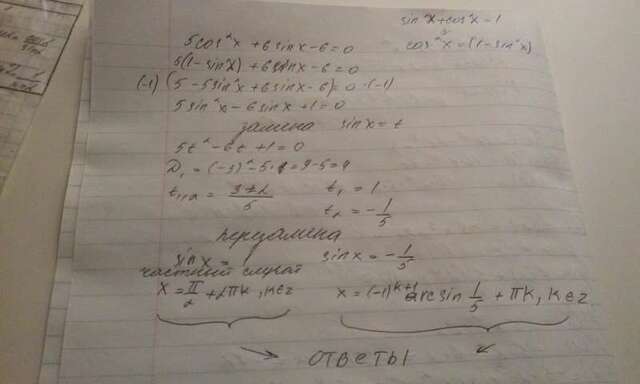 sin²x+cos²x=1
cos²x=(1-sin²x)
5cos²x+6sinx-6=0
5(1-sin²x)+6sinx-6=0
(-1) (5-5sin²x+6sinx-6)=0·(-1)
5sin²x-6sinx+1=0
замена sinx=t
5t²-6t+1=0
D₁=(-3)²-5·1=9-5=4
t₁,₂=3±2/5 t₁=1
t₂=-1/5
перезамена
sinx= sinx=-1/5
частный случай
x=π/2+2πk, k∈z x=(-1)ᵏ⁺¹arcsin 1/5+πk, k∈z
ответы